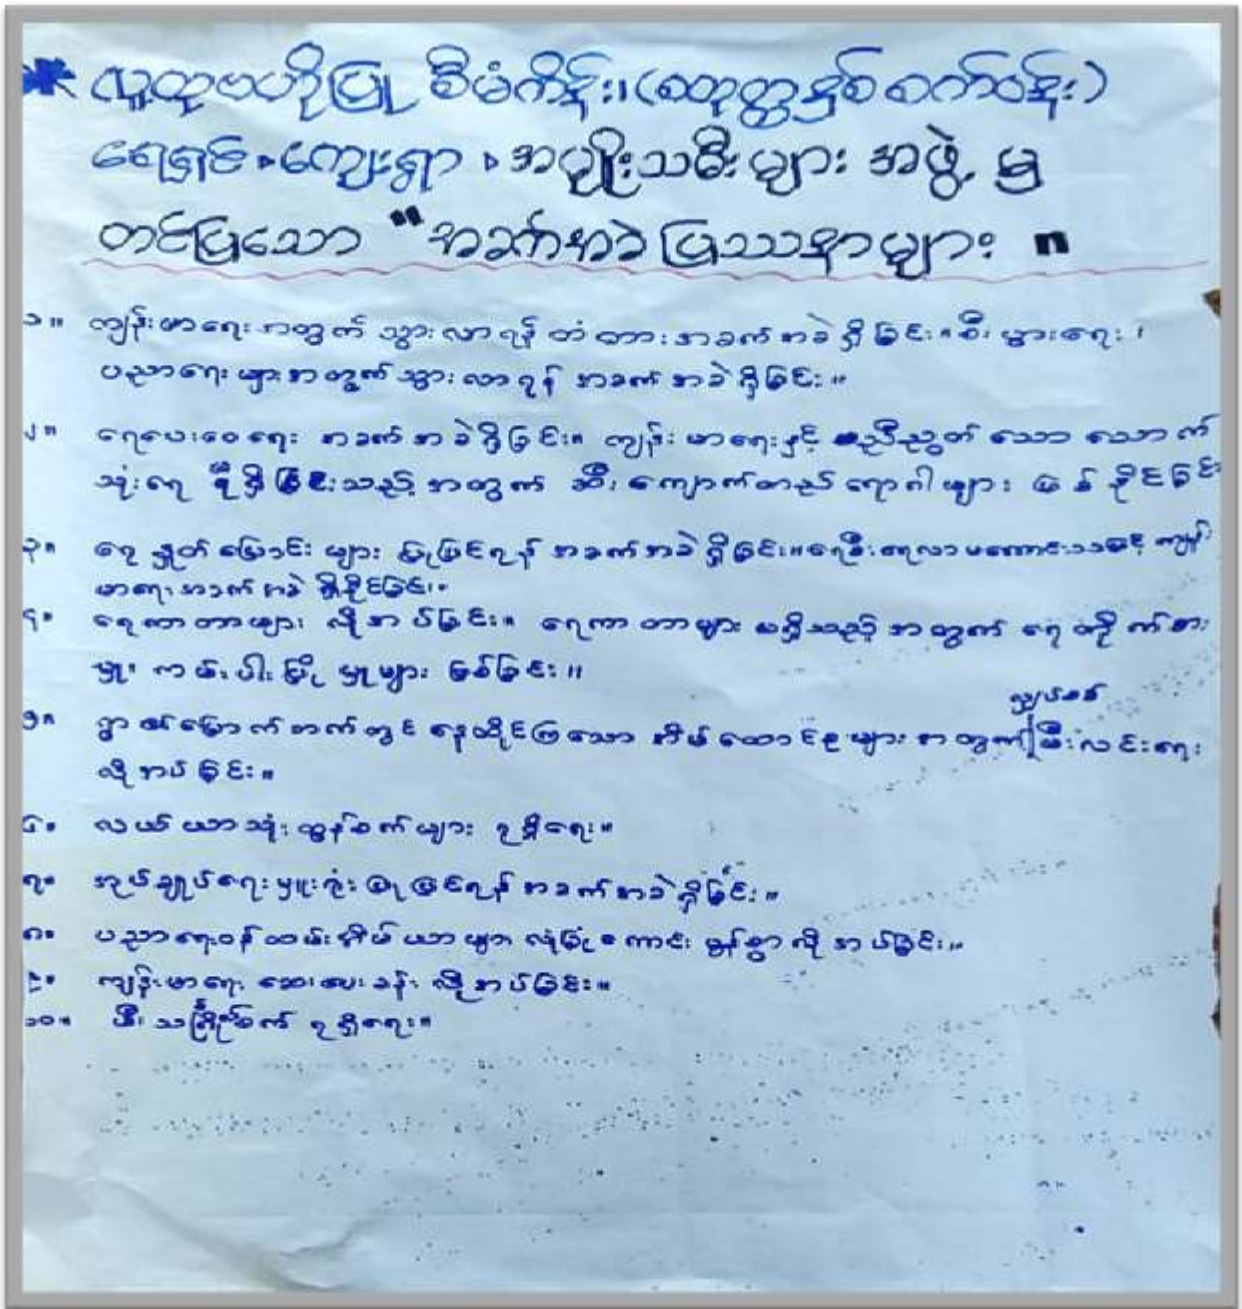 * လူထုဗဟိုပြု စီမံကိန်း၊ (စတုတ္ထနှစ်စက်ဝန်း)
ရေရှင် ကျေးရွာ အမျိုးသမီးများ အဖွဲ့ မှ
တင်ပြသော "အခက်အခဲ ပြဿနာများ "
၁။ ကျန်းမာရေးအတွက် သွားလာရန် တံတားအခက်အခဲရှိခြင်း။ စီးပွားရေး၊
ပညာရေးများအတွက်သွားလာရန် အခက်အခဲရှိခြင်း။
၂။ ရေပေးဝေရေး အခက်အခဲရှိခြင်း။ ကျန်းမာရေးနှင့် ညီညွတ်သော သောက်
သုံးရေ မရရှိခြင်းသည့်အတွက် ဆီးကျောက်တည်ရောဂါများ ဖြစ်နိုင်ခြင်း
၃။ ရေနှုတ်မြောင်းများ ပြုပြင်ရန် အခက်အခဲရှိခြင်း။ ရေစီးရေလာမကောင်းသဖြင့် ကျန်း
မာရေးအခက်အခဲ ရှိနိုင်ခြင်း။
၄။ ရေကာတာများ လိုအပ်ခြင်း။ ရေကာတာများ မရှိသည့်အတွက် ရေတိုက်စား
မှု၊ ကမ်းပါးပြိုမှုများ ဖြစ်ခြင်း။
၅။ ရွာ၏မြောက်ဘက်တွင် နေထိုင်ကြသော အိမ်ထောင်စုများအတွက် လျှပ်စစ် မီးလင်းရေး
လိုအပ်ခြင်း။
၆။ လယ်ယာသုံးထွန်စက်များ ရရှိရေး။
၇။ အုပ်ချုပ်ရေးမှူးရုံး ပြုပြင်ရန် အခက်အခဲရှိခြင်း။
၈။ ပညာရေးဝန်ထမ်းအိမ်ယာများ လုံခြုံကောင်းမွန်စွာလိုအပ်ခြင်း။
၉။ ကျန်းမာရေး ဆေးပေးခန်း လိုအပ်ခြင်း။
၁၀။ မီးသင်္ဂြိုဟ်စက် ရရှိရေး။